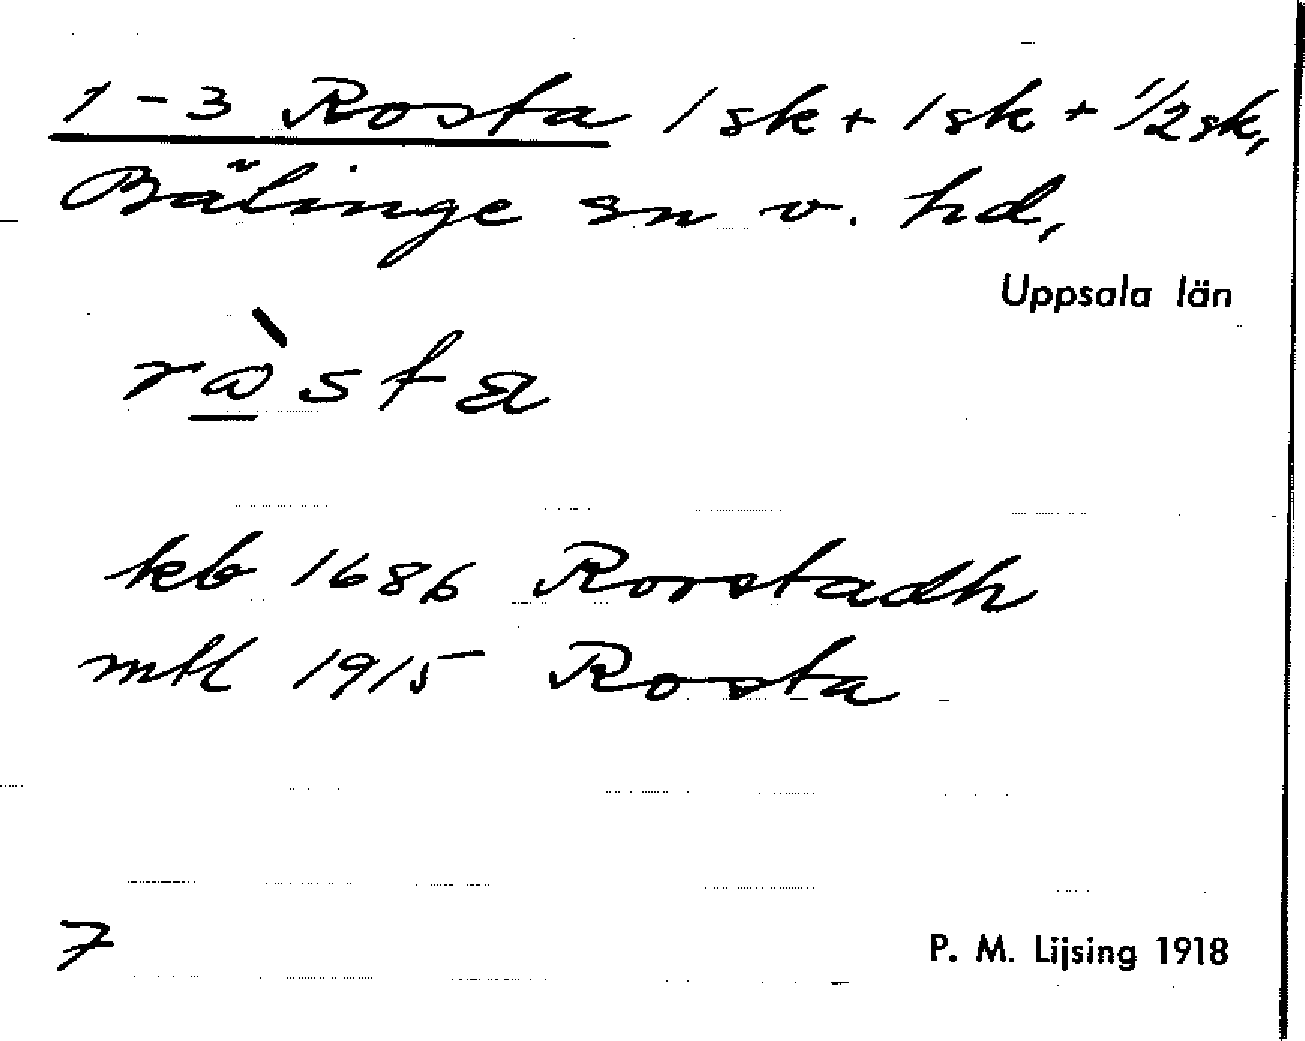 1-3 Rosta 1 sk + 1 sk + 1/2 sk,
Bälinge sn o. hd,
Uppsala län
rὼsta
kb 1686 Rorstadh
mtl 1915 Rosta
7
P. M. Lijsing 1918